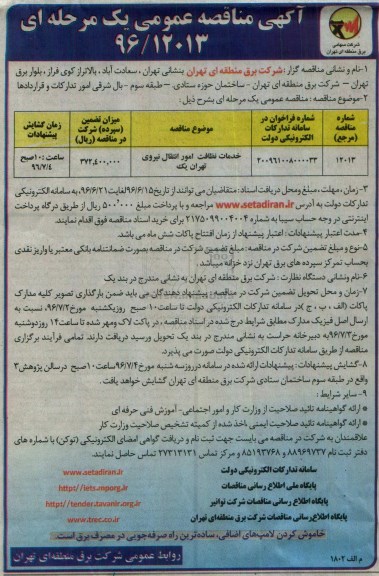 آگهی مناقصه عمومی یک مرحله ای
۹۶/۱۲۰۱۳
شرکت سهامی
برق منطقه ای تهران
۱-نام و نشانی مناقصه گزار: شرکت برق منطقه ای تهران بنشانی تهران، سعادت آباد، بالاتراز کوی فراز، بلوار برق
تهران – شرکت برق منطقه ای تهران - ساختمان حوزه ستادی – طبقه سوم -بال شرقی امور تدارکات و قراردادها
۲-موضوع مناقصه: مناقصه عمومی یک مرحله ای بشرح ذیل:
شماره مناقصه (مرجع) شماره فراخوان در سامانه تدارکات الکترونیکی دولت موضوع مناقصه میزان تضمین (سپرده) شرکت در مناقصه (ریال) زمان گشایش پیشنهادات
۱۲۰۱۳ ۲۰۰۹۶۱۰۰۸۰۰۰۰۳۳ خدمات نظافت امور انتقال نیروی تهران یک ۳۷۲,۴۰۰,۰۰۰ ساعت:۱۰صبح ۹۶/۷/۴
۳- زمان، مهلت، مبلغ ومحل دریافت اسناد: متقاضیان می توانند از تاریخ ۹۶/۶/۱۵لغایت۹۶/۶/۲۱، به سامانه الکترونیکی
تدارکات دولت به آدرس www.setadiran.ir مراجعه و با پرداخت مبلغ ۵۰۰,۰۰۰ ریال از طریق درگاه پرداخت
اینترنتی در وجه حساب سیبا به شماره ۲۱۷۵۰۹۹۰۰۴۰۰۴ برای خرید اسناد مناقصه فوق اقدام نمایند.
۴-مدت اعتبار پیشنهادات: اعتبار پیشنهاد از زمان افتتاح پاکات شش ماه می باشد.
۵-نوع و مبلغ تضمین شرکت در مناقصه: مبلغ تضمین شرکت در مناقصه بصورت ضمانتنامه بانکی معتبر یا واریز نقدی
بحساب تمرکز سپرده های برق تهران نزد خزانه میباشد.
۶-نام ونشانی دستگاه نظارت: شرکت برق منطقه ای تهران به نشانی مندرج در بند یک
۷-زمان و محل تحویل تضمین شرکت در مناقصه: پیشنهاد دهندگان می باید ضمن بارگذاری تصویر کلیه مدارک
پاکات (الف ، ب ، ج)در سامانه تدارکات الکترونیکی دولت تا ساعت ۱۰ صبح روزیکشنبه مورخ۹۶/۷/۲، نسبت به
ارسال اصل فیزیک مدارک مطابق شرایط درج شده در اسناد مناقصه، در پاکت لاک ومهر شده تا ساعت۱۴ روزدوشنبه
مورخ۹۶/۷/۳به دبیرخانه حراست به نشانی مندرج در بند یک تحویل ورسید دریافت دارند. تمامی فرآیند برگزاری
مناقصه از طریق سامانه تدارکات الکترونیکی دولت صورت می پذیرد.
۸-گشایش پیشنهادات: پیشنهادات ارائه شده در سامانه در روز سه شنبه مورخ۹۶/۷/۴ ساعت۱۰صبح درسالن پژوهش۳
واقع در طبقه سوم ساختمان ستادی شرکت برق منطقه ای تهران گشایش خواهد یافت.
۹- سایر شرایط:
* ارائه گواهینامه تائید صلاحیت از وزارت کار و امور اجتماعی - آموزش فنی حرفه ای
* ارائه گواهینامه تائید صلاحیت ایمنی ،اخذ شده از کمیته تشخیص صلاحیت وزارت کار
علاقمندان به شرکت در مناقصه می بایست جهت ثبت نام و دریافت گواهی امضای الکترونیکی (توکن) با شماره های
دفتر ثبت نام ۸۸۹۶۹۷۳۷ و ۸۵۱۹۳۷۶۸ و مرکز تماس ۲۷۳۱۳۱۳۱ تماس حاصل نمایند.
سامانه تدارکات الکترونیکی دولت www.setadiran.ir
پایگاه ملی اطلاع رسانی مناقصات http://iets.mporg.ir
پایگاه اطلاع رسانی مناقصات شرکت توانیر http://tender.tavanir.org.ir
پایگاه اطلاع رسانی مناقصات شرکت برق منطقه ای تهران www.trec.co.ir
خاموش کردن لامپ های اضافی، ساده ترین راه صرفه جویی در مصرف برق است.
روابط عمومی شرکت برق منطقه ای تهران
م الف ۱۸۰۲